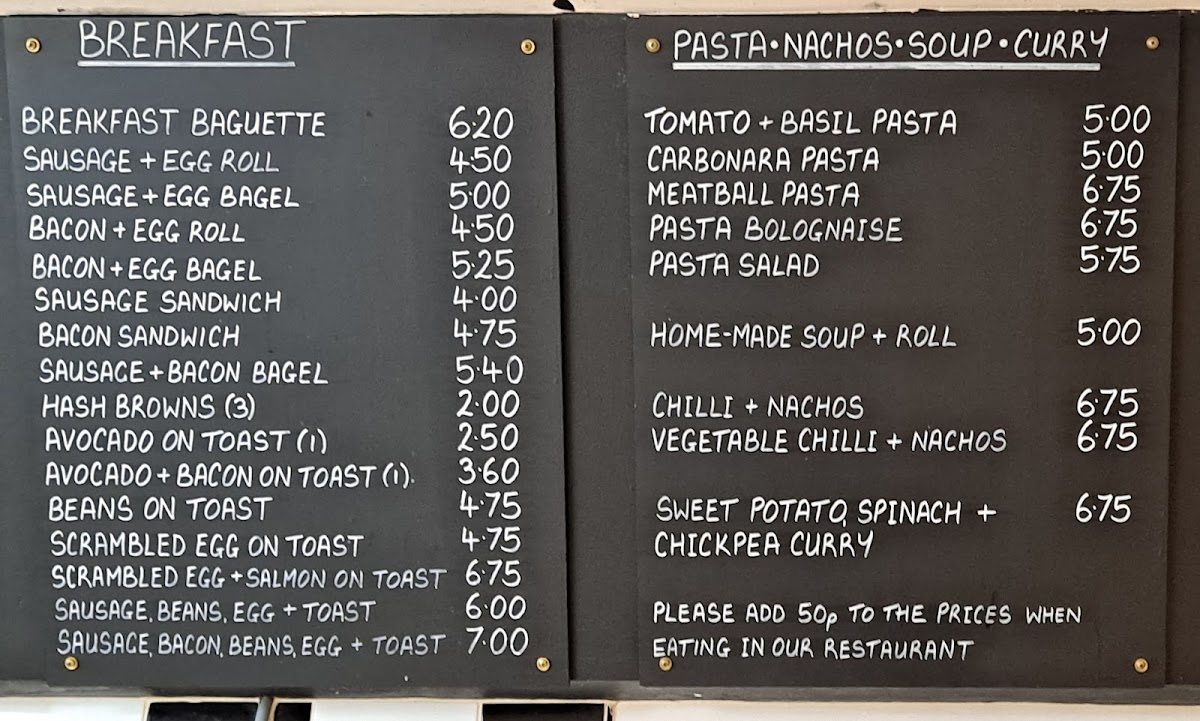 BREAKFAST
BREAKFAST BAGUETTE 6·20
SAUSAGE + EGG ROLL 4·50
SAUSAGE + EGG BAGEL 5·00
BACON + EGG ROLL 4·50
BACON + EGG BAGEL 5·25
SAUSAGE SANDWICH 4·00
BACON SANDWICH 4·75
SAUSAGE + BACON BAGEL 5·40
HASH BROWNS (3) 2·00
AVOCADO ON TOAST (1) 2·50
AVOCADO + BACON ON TOAST (1). 3·60
BEANS ON TOAST 4·75
SCRAMBLED EGG ON TOAST 4·75
SCRAMBLED EGG + SALMON ON TOAST 6·75
SAUSAGE, BEANS, EGG + TOAST 6·00
SAUSAGE, BACON, BEANS, EGG + TOAST 7·00
PASTA·NACHOS·SOUP·CURRY
TOMATO + BASIL PASTA 5·00
CARBONARA PASTA 5·00
MEATBALL PASTA 6·75
PASTA BOLOGNAISE 6·75
PASTA SALAD 5·75
HOME-MADE SOUP + ROLL 5·00
CHILLI + NACHOS 6·75
VEGETABLE CHILLI + NACHOS 6·75
SWEET POTATO, SPINACH + 6·75
CHICKPEA CURRY
PLEASE ADD 50p TO THE PRICES WHEN
EATING IN OUR RESTAURANT